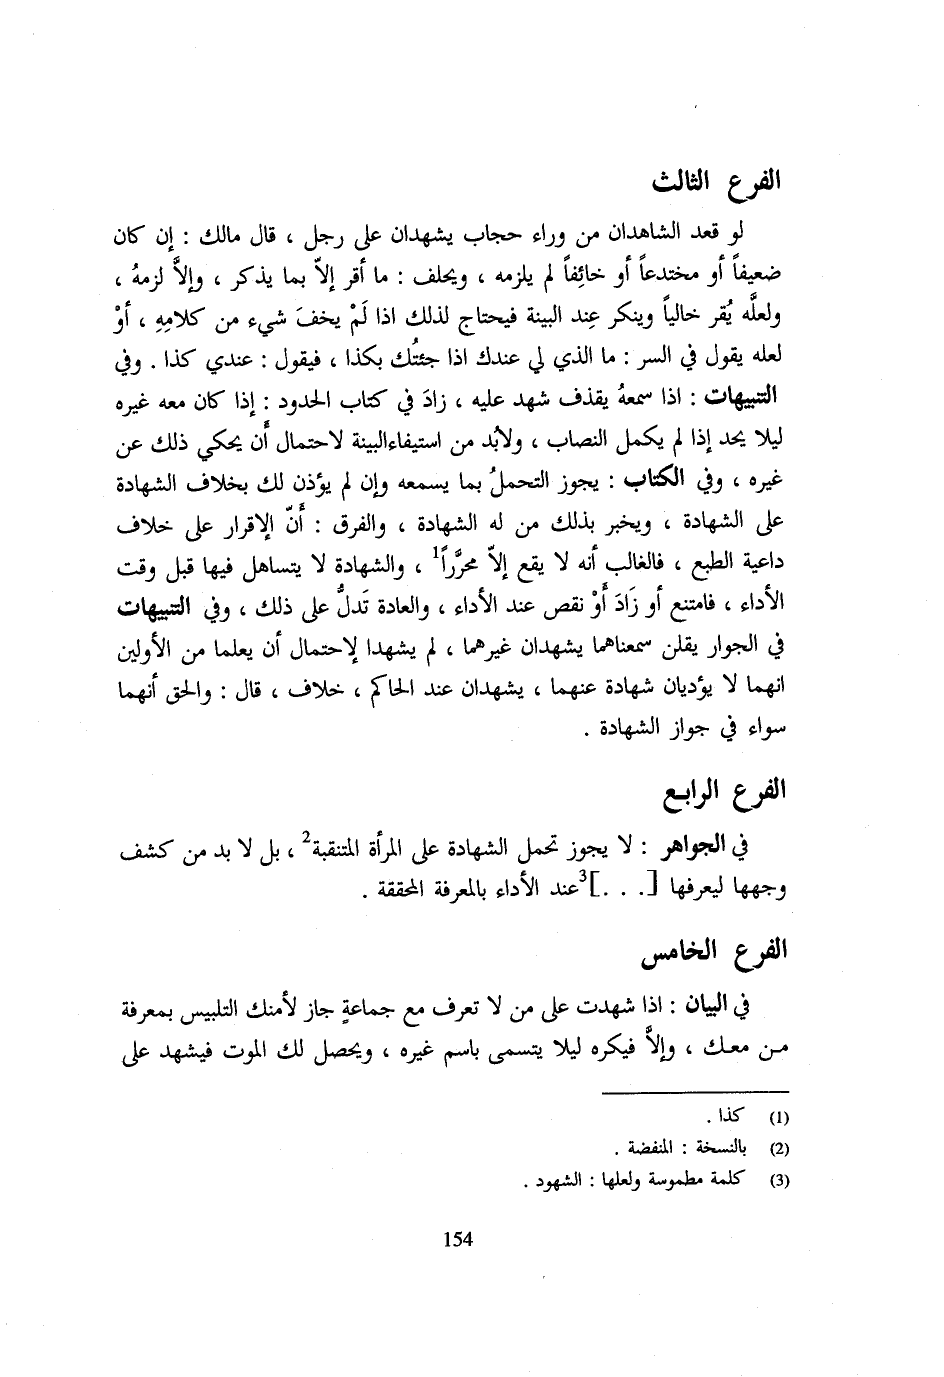 الفرع الثالث
لو قعد الشاهدان من وراء حجاب يشهدان على رجل ، قال مالك : إن كان
ضعيفاً أو مختدعاً أو خائِفاً لم يلزمه ، ويحلف : ما أقر إلاّ بما يذكر ، وإلاَّ لزمهُ ،
ولعلَّه يُقر خالياً وينكر عِند البينة فيحتاج لذلك اذا لَمْ يخفَ شيء من كلامِهِ ، أوْ
لعله يقول في السر : ما الذي لي عندك اذا جئتُك بكذا ، فيقول : عندي كذا . وفي
التنبيهات : اذا سمعهُ يقذف شهد عليه ، زادَ في كتاب الحدود : إذا كان معه غيره
ليلا يحد إذا لم يكمل النصاب ، ولابُد من استيفاءالبينة لاحتمال أَن يحكي ذلك عن
غيره ، وفي الكتاب : يجوز التحملُ بما يسمعه وإن لم يؤذن لك بخلاف الشهادة
على الشهادة ، ويخبر بذلك من له الشهادة ، والفرق : أَنّ الإقرار على خلاف
داعية الطبع ، فالغالب أنه لا يقع إلاّ محرَّراً1 ، والشهادة لا يتساهل فيها قبل وقت
الأداء ، فامتنع أو زَادَ أَوْ نقص عند الأداء ، والعادة تَدلُّ على ذلك ، وفي التنبيهات
في الجوار يقلن سمعناهما يشهدان غيرهما ، لم يشهدا لإحتمال أن يعلما من الأولين
انهما لا يؤديان شهادة عنهما ، يشهدان عند الحاكم ، خلاف ، قال : والحق أنهما
سواء في جواز الشهادة .
الفرع الرابع
في الجواهر : لا يجوز تحمل الشهادة على المرأة المتنقبة2 ، بل لا بد من كشف
وجهها ليعرفها [. . .]3عند الأداء بالمعرفة المحققة .
الفرع الخامس
في البيان : اذا شهدت على من لا تعرف مع جماعةٍ جاز لأمنك التلبيس بمعرفة
من معك ، وإلاَّ فيكره ليلا يتسمى باسم غيره ، ويحصل لك الموت فيشهد على
(1) كذا .
(2) بالنسخة : المنفضة .
(3) كلمة مطموسة ولعلها : الشهود .
154